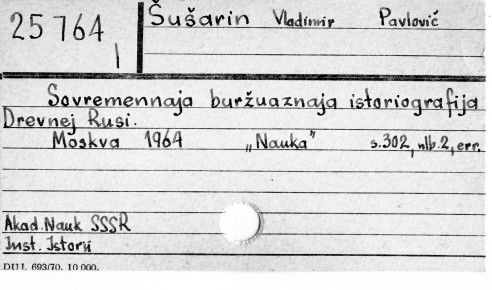 25 764
I
Šušarin Vladimir Pavlovič
Sovremennaja buržuaznaja istoriografija
Drevnej Rusi.
Moskva 1964 „Nauka" s.302, nlb.2, err.
Akad. Nauk SSSR
Inst. Istorii
DUJ. 693/70. 10.000.